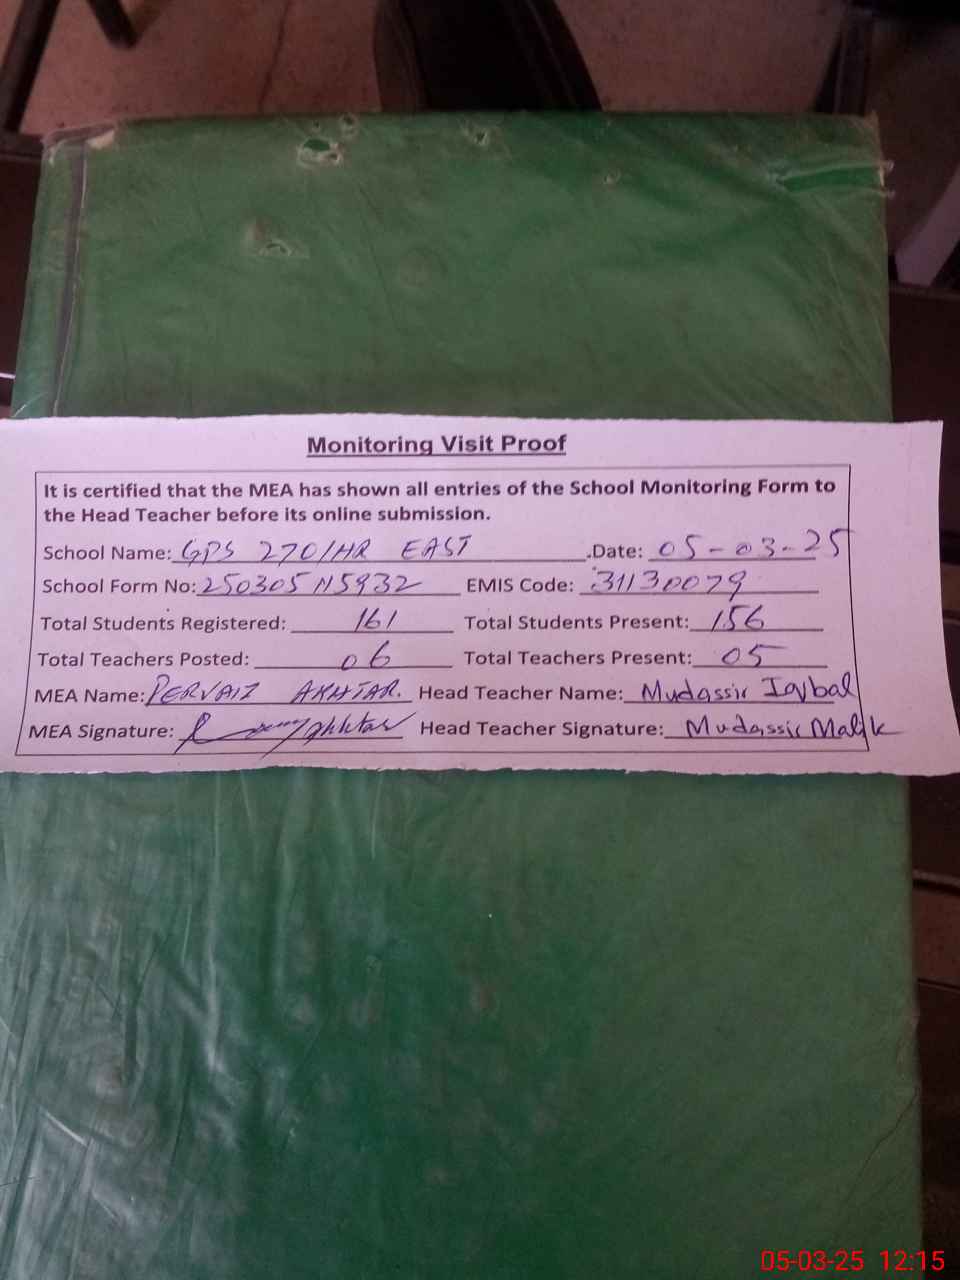 Monitoring Visit Proof
It is certified that the MEA has shown all entries of the School Monitoring Form to
the Head Teacher before its online submission.
School Name: GPS 270/HR EAST .Date: 05-03-25
School Form No: 250305115932 EMIS Code: 31130079
Total Students Registered: 161 Total Students Present: 156
Total Teachers Posted: 06 Total Teachers Present: 05
MEA Name: PERVAIZ AKHTAR. Head Teacher Name: Mudassir Iqbal
MEA Signature: Akhtar Head Teacher Signature: Mudassir Malik
05-03-25 12:15